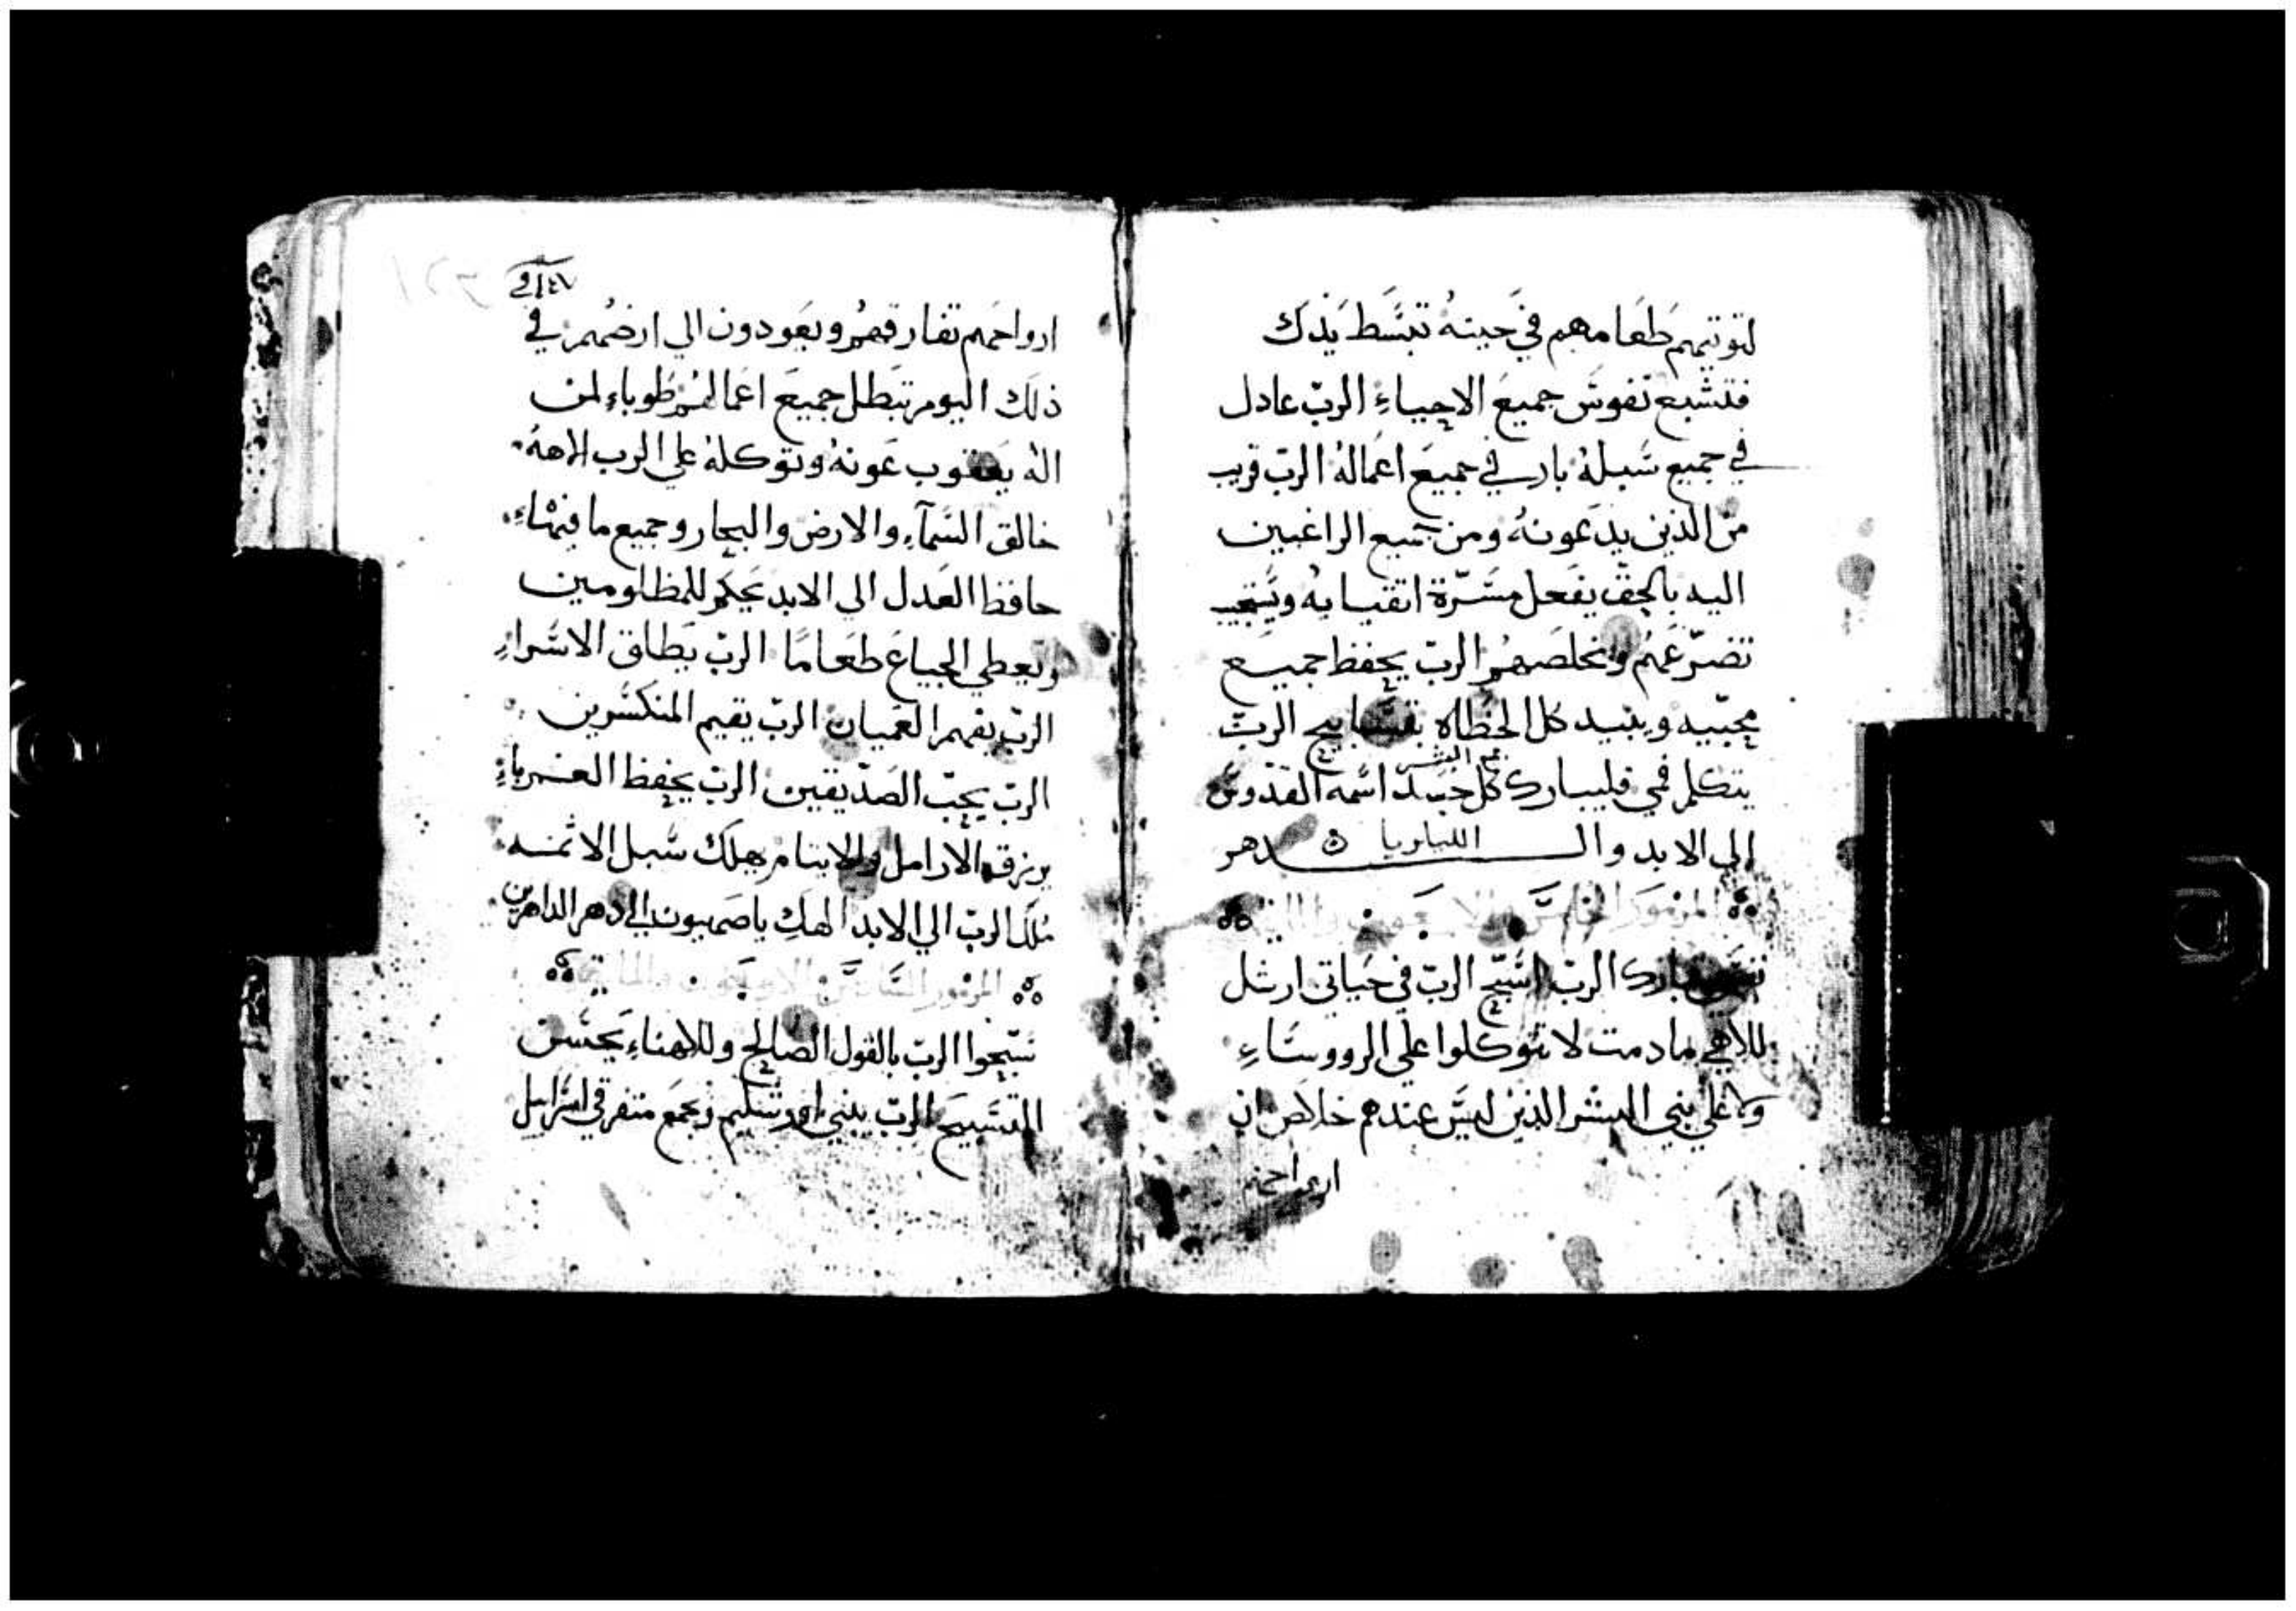 لتوتيهم طعامهم في حينه تبسط يدك
فتشبع نفوس جميع الاحياء الرب عادل
في جميع سبله بار في جميع اعماله الرب قريب
من الذين يدعونه ومن جميع الراغبين
اليه بالحق يفعل مسرة اتقيايه ويستجيب
تضرعهم ويخلصهم الرب يحفظ جميع
محبيه ويبيد كل الخطاه بتسابيح الرب
البشر
يتكلم فمي فليبارك كل جسد اسمه القدوس
الي الابد والدهر الليلويا
المزمور الخامس والاربعون والمايه
نفسي بارك الرب اسبح الرب في حياتي ارتل
للاهي ما دمت لا تتوكلوا علي الرووساء
ولا علي بني البشر الذين ليس عندهم خلاص ان
ارواحهم
ارواحهم تفارقهم ويعودون الي ارضهم في
ذلك اليوم تبطل جميع اعمالهم طوباء لمن
اله يعقوب عونه وتوكله علي الرب الاهه
خالق السماء والارض والبحار وجميع ما فيهاء
حافظ العدل الي الابد يحكم للمظلومين
ويعطي الجياع طعاما الرب يطلق الاسراء
الرب يفهم العميان الرب يقيم المنكسرين
الرب يحب الصديقين الرب يحفظ الغرباء
يرزق الارامل والايتام يهلك سبل الاثمه
ملك الرب الي الابد الهك ياصهيون الي دهر الداهرين
المزمور السادس والاربعون والمايه
سبحوا الرب بالقول الصالح وللاهناء يحسن
التسبيح الرب يبني اورشليم ويجمع متفرقي اسراييل